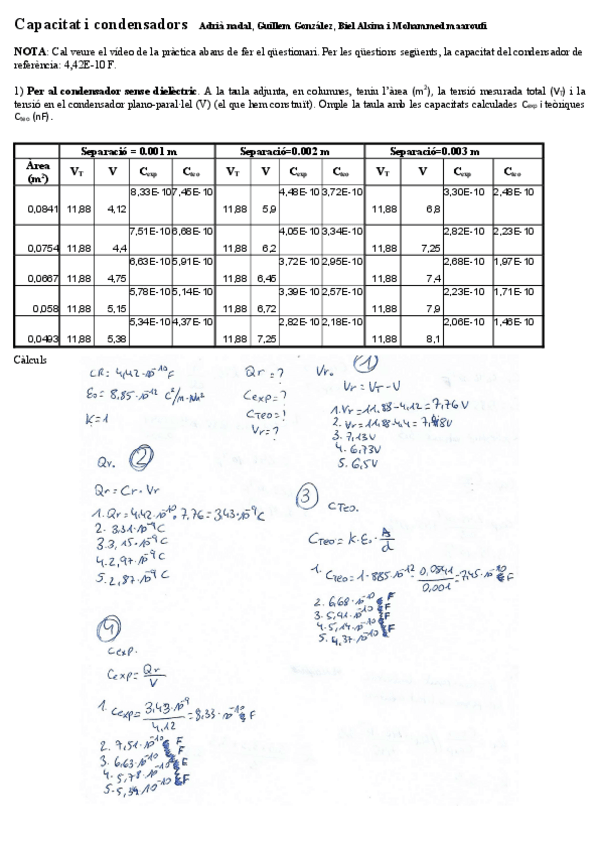 Capacitat i condensadors Adrià nadal, Guillem González, Biel Alsina i Mohammed maaroufi
NOTA: Cal veure el vídeo de la pràctica abans de fer el qüestionari. Per les qüestions següents, la capacitat del condensador de
referència: 4,42E-10 F.
1) Per al condensador sense dielèctric. A la taula adjunta, en columnes, teniu l'àrea (m²), la tensió mesurada total (VT) i la
tensió en el condensador plano-paral·lel (V) (el que hem construït). Omple la taula amb les capacitats calculades Cexp i teòriques
Cteo (nF).
Separació = 0.001 m Separació=0.002 m Separació=0.003 m
Àrea (m²) VT V Cexp Cteo VT V Cexp Cteo VT V Cexp Cteo
0,0841 11,88 4,12 8,33E-10 7,45E-10 11,88 5,9 4,48E-10 3,72E-10 11,88 6,8 3,30E-10 2,48E-10
0,0754 11,88 4,4 7,51E-10 6,68E-10 11,88 6,2 4,05E-10 3,34E-10 11,88 7,25 2,82E-10 2,23E-10
0,0667 11,88 4,75 6,63E-10 5,91E-10 11,88 6,45 3,72E-10 2,95E-10 11,88 7,4 2,68E-10 1,97E-10
0,058 11,88 5,15 5,78E-10 5,14E-10 11,88 6,72 3,39E-10 2,57E-10 11,88 7,9 2,23E-10 1,71E-10
0,0493 11,88 5,38 5,34E-10 4,37E-10 11,88 7,25 2,82E-10 2,18E-10 11,88 8,1 2,06E-10 1,46E-10
Càlculs
CR = 4,42·10⁻¹⁰F
ε₀ = 8,85·10⁻¹² C²/m·Nm²
K=1
Qr = ?
Cexp = ?
CTeo = ?
Vr = ?
Vr. 1
Vr = VT - V
1. Vr = 11,88-4,12 = 7,76V
2. Vr = 11,88-4,4 = 7,48V
3. 7,13V
4. 6,73V
5. 6,5V
Qr. 2
Qr = Cr · Vr
1. Qr = 4,42·10⁻¹⁰· 7,76 = 3,43·10⁻⁹ C
2. 3,31·10⁻⁹ C
3. 3,15·10⁻⁹ C
4. 2,97·10⁻⁹ C
5. 2,87·10⁻⁹ C
3 CTeo.
CTeo = K·ε₀· A/d
1. CTeo = 1·8,85·10⁻¹²· 0,0841/0,001 = 7,45·10⁻¹⁰ F
2. 6,68·10⁻¹⁰ F
3. 5,91·10⁻¹⁰ F
4. 5,14·10⁻¹⁰ F
5. 4,37·10⁻¹⁰ F
4
Cexp.
Cexp = Qr/V
1. Cexp = 3,43·10⁻⁹/4,12 = 8,33·10⁻¹⁰ F
2. 7,51·10⁻¹⁰ F
3. 6,63·10⁻¹⁰ F
4. 5,78·10⁻¹⁰ F
5. 5,34·10⁻¹⁰ F